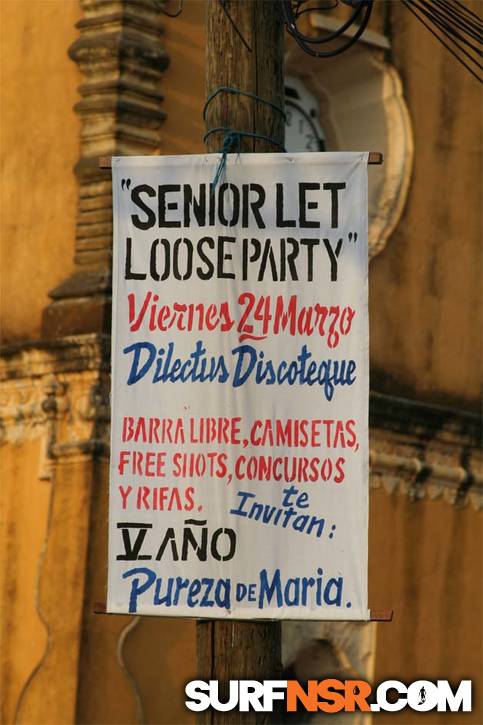 "SENIOR LET
LOOSE PARTY"
Viernes 24 Marzo
Dilectus Discoteque
BARRA LIBRE, CAMISETAS,
FREE SHOTS, CONCURSOS
Y RIFAS.
te
Invitan:
V AÑO
Pureza DE Maria.
SURFNSR.COM